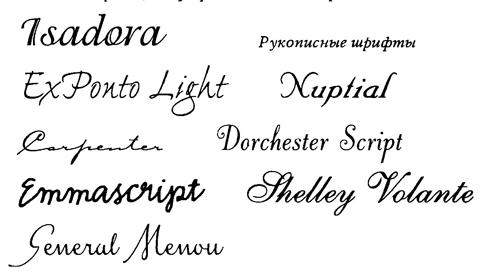 Isadora
Рукописные шрифты
ExPonto Light Nuptial
Carpenter Dorchester Script
Emmascript Shelley Volante
General Menou